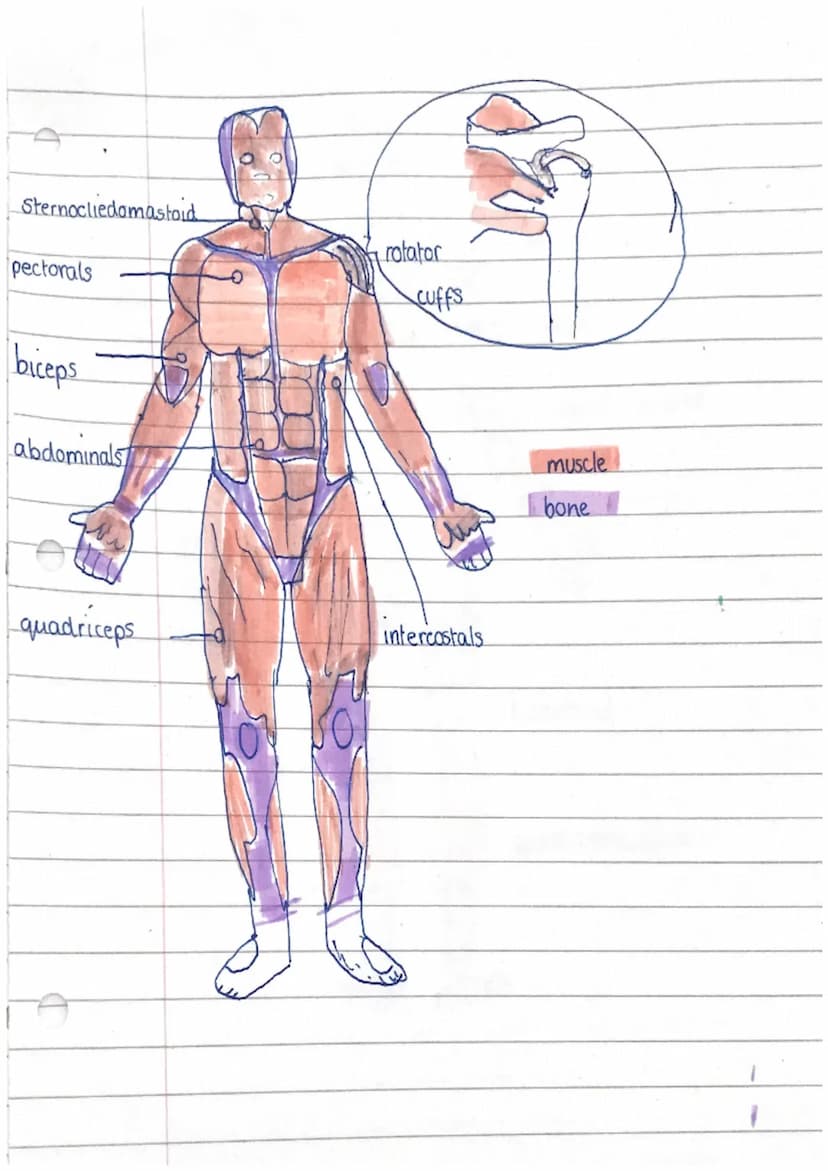 sternocliedomastoid
pectorals
rotator
cuffs
biceps
abdominals
muscle
bone
quadriceps
intercostals